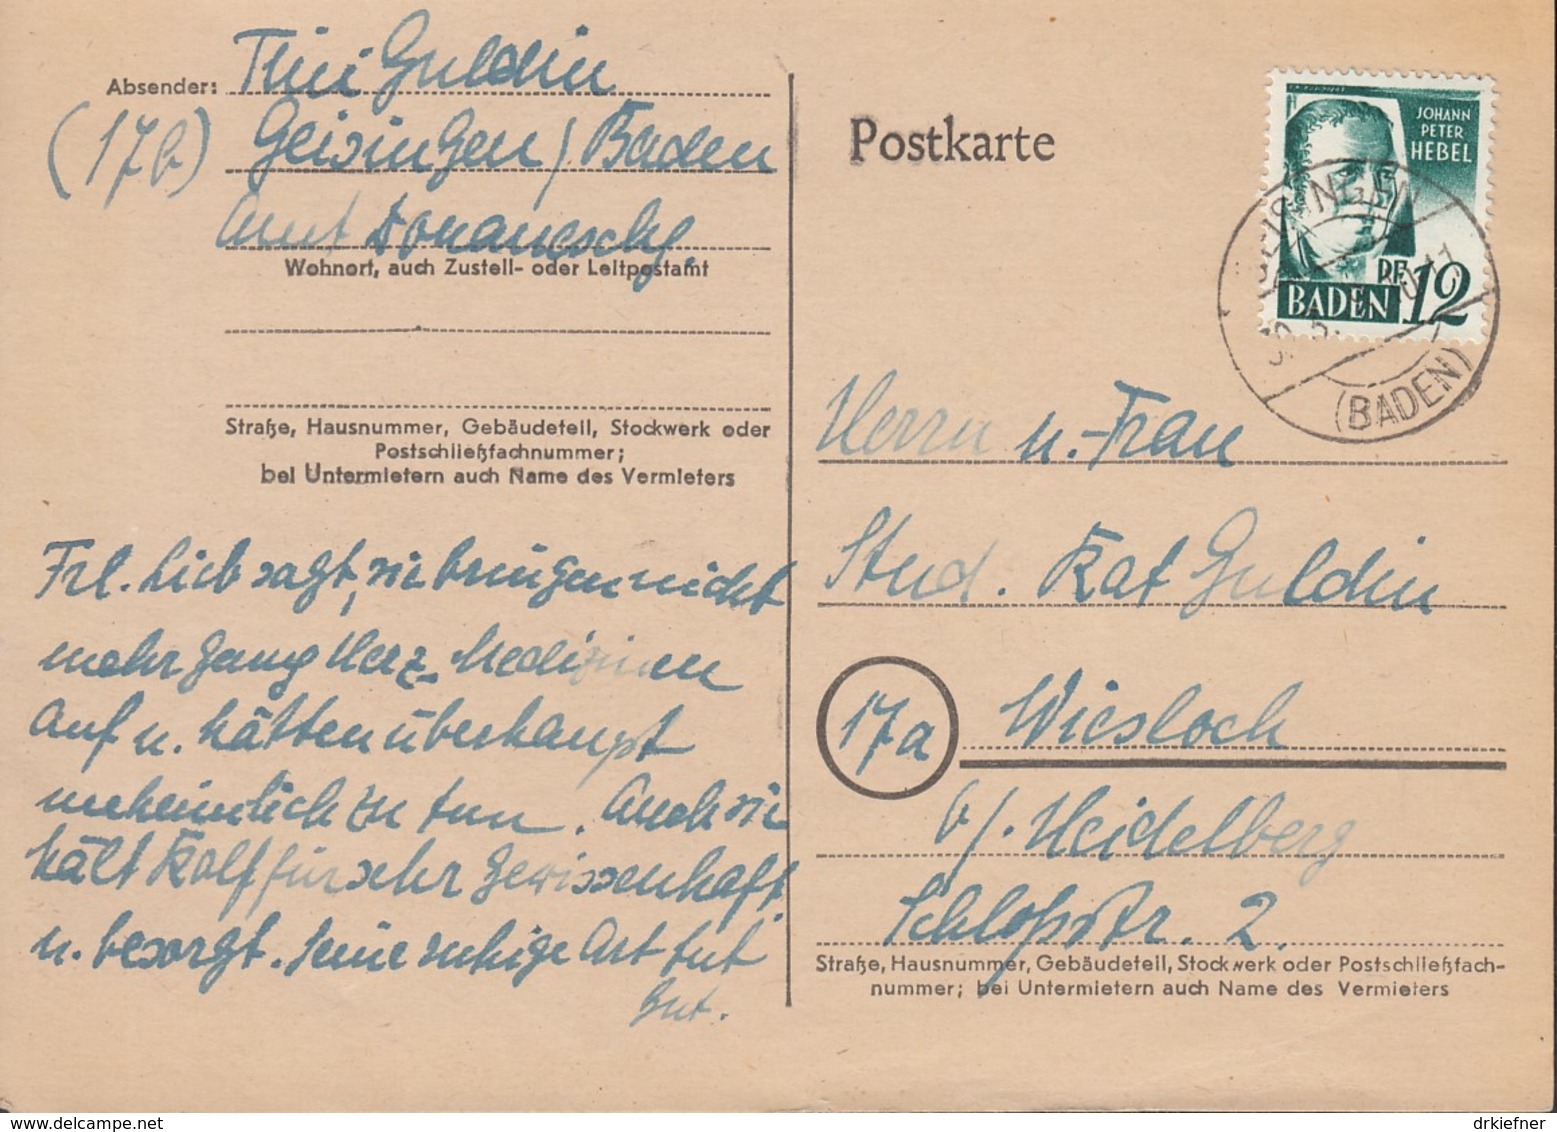 Absender: Tini Guldin
(17b) Geisingen / Baden
Amt Donaueschg.
Wohnort, auch Zustell- oder Leitpostamt
Straße, Hausnummer, Gebäudeteil, Stockwerk oder
Postschließfachnummer;
bei Untermietern auch Name des Vermieters
Frl. Lieb sagt, sie bringen nicht
mehr genug Herz-Medizinen
auf u. hätten überhaupt
unheimlich zu tun. Auch sie
hält Rolf für sehr gewissenhaft
u. besorgt. Seine ruhige Art tut
gut.
Postkarte
JOHANN
PETER
HEBEL
PF 12
BADEN
GEISINGEN
(BADEN)
Herrn u. Frau
Stud. Rat Guldin
17a Wiesloch
b/. Heidelberg
Schloßstr. 2.
Straße, Hausnummer, Gebäudeteil, Stockwerk oder Postschließfach-
nummer; bei Untermietern auch Name des Vermieters
www.delcampe.net
drkiefner